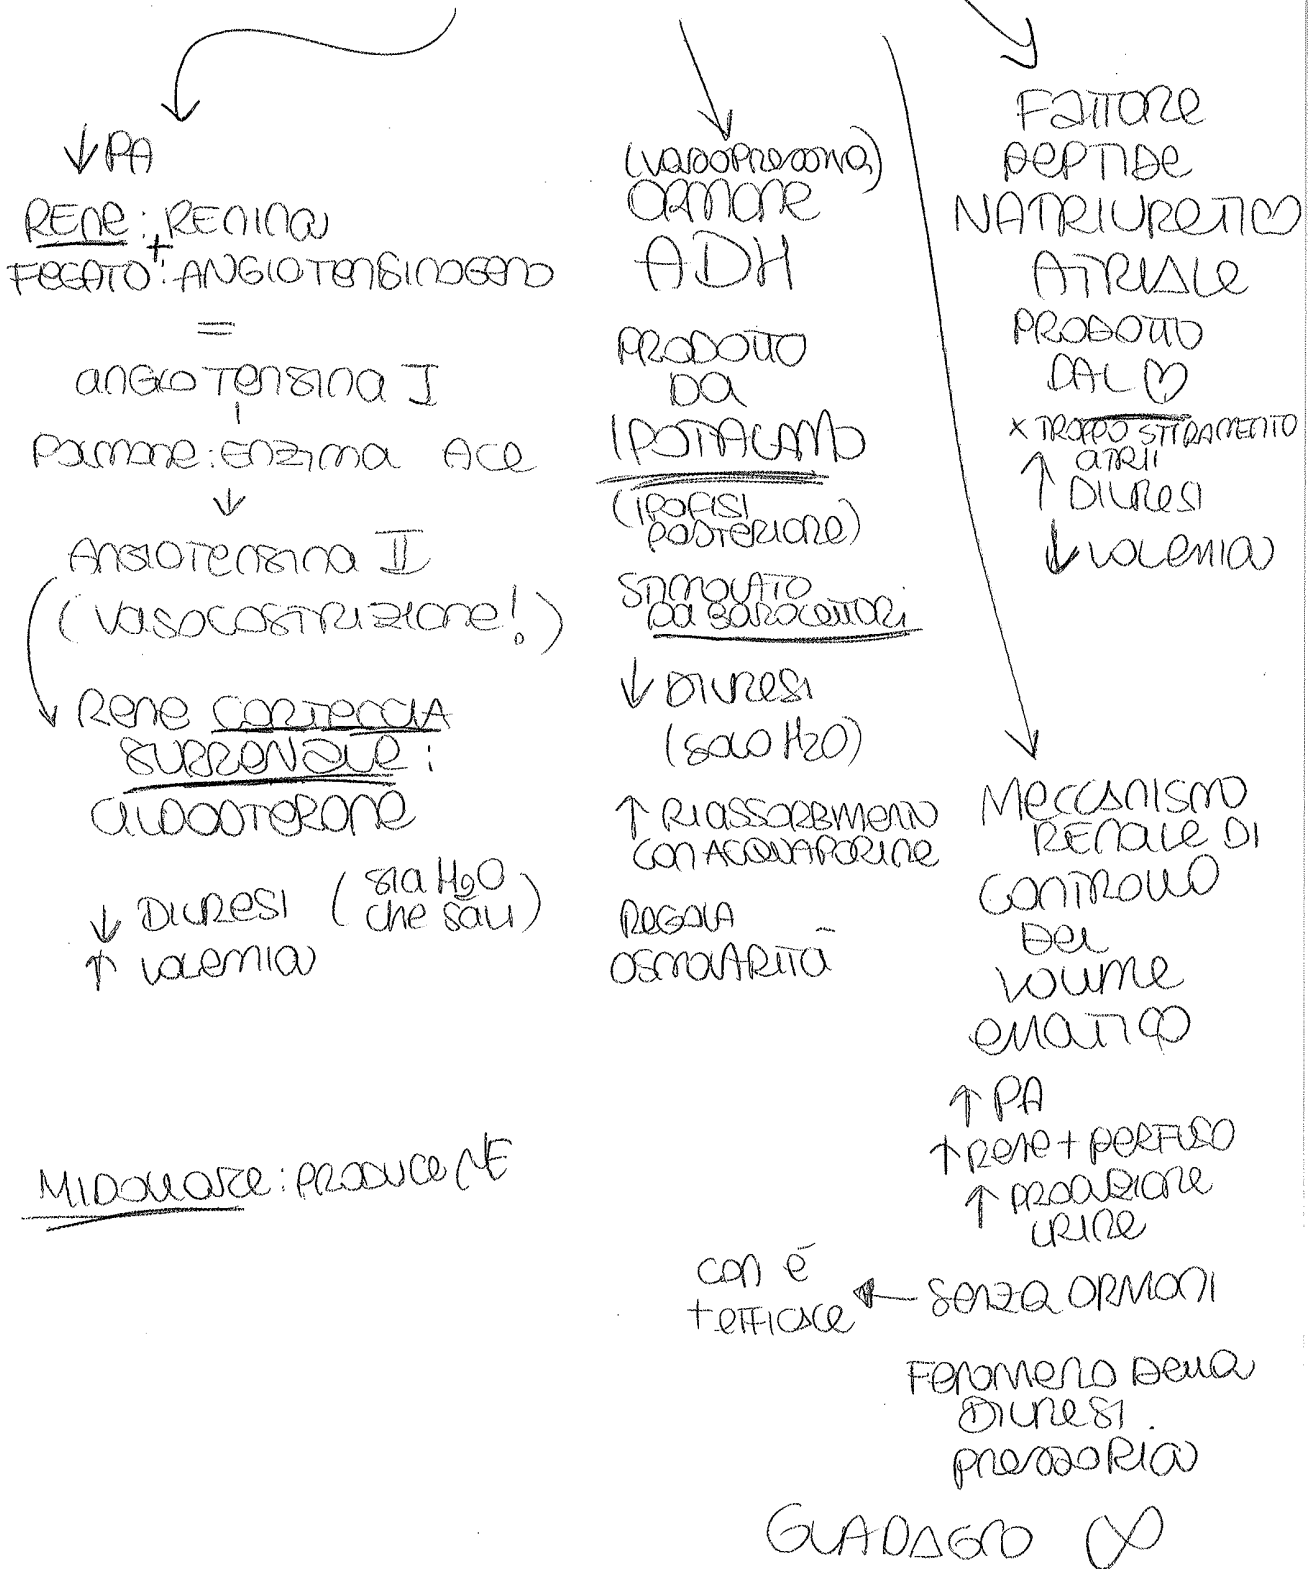 ↓ PA
RENE: RENINA
+
FEGATO: ANGIOTENSINOGENO
=
ANGIOTENSINA I
POLMONE: ENZIMA ACE
↓
ANGIOTENSINA II
(VASOCOSTRIZIONE!)
RENE CORTECCIA
SURRENALE:
ALDOSTERONE
↓ DIURESI (SIA H2O
CHE SALI)
↑ VOLEMIA
MIDOLLARE: PRODUCE NE
(VASOPRESSINA)
ORMONE
ADH
PRODOTTO
DA
IPOTALAMO
(IPOFISI
POSTERIORE)
STIMOLATO
DA BAROCETTORI
↓ DIURESI
(SOLO H2O)
↑ RIASSORBIMENTO
CON ACQUAPORINE
REGOLA
OSMOLARITÀ
FATTORE
PEPTIDE
NATRIURETICO
ATRIALE
PRODOTTO
DAL ♡
X TROPPO STIRAMENTO
ATRII
↑ DIURESI
↓ VOLEMIA
MECCANISMO
RENALE DI
CONTROLLO
DEL
VOLUME
EMATICO
↑ PA
↑ RENE + PERFUSO
↑ PRODUZIONE
URINE
SENZA ORMONI
CON È
+ EFFICACE
FENOMENO DELLA
DIURESI
PRESSORIA
GUADAGNO ∞